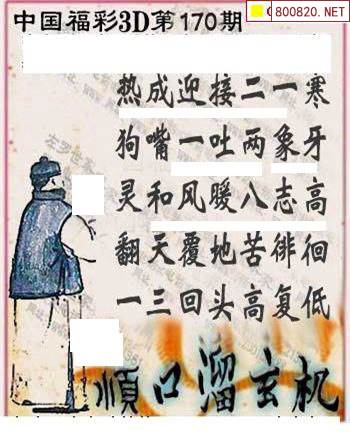 800820.NET
中国福彩3D第170期
热成迎接二一寒
狗嘴一吐两象牙
灵和风暖八志高
翻天覆地苦徘徊
一三回头高复低
顺口溜玄机